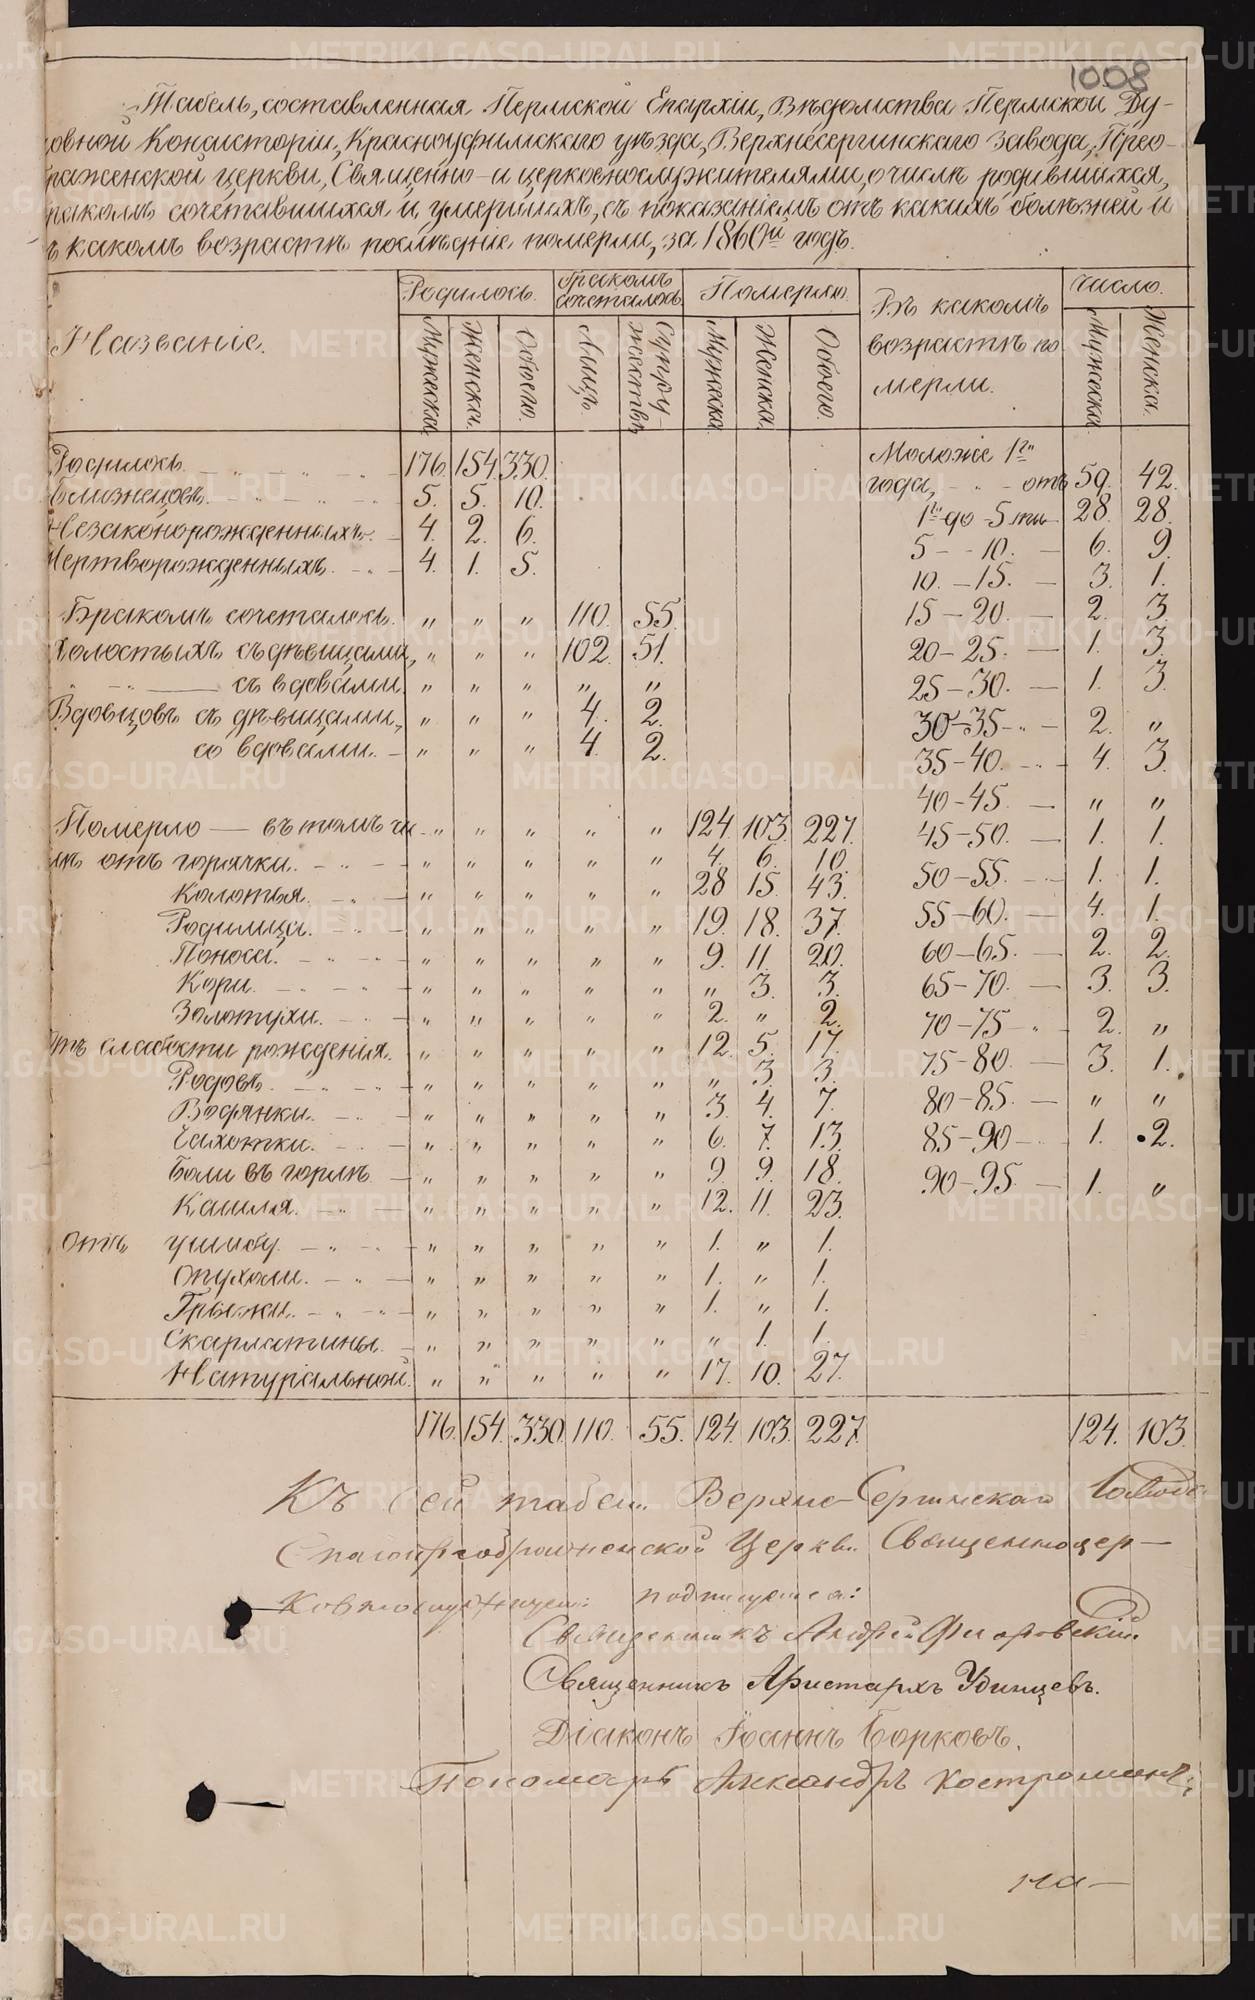 1008
Табель, составленная Пермской Епархіи, Вѣдомства Пермской Ду-
ховной Консисторіи, Красноуфимскаго уѣзда, Верхнесергинскаго завода, Прео-
раженской церкви, Священно- и церковнослужителями, о числѣ родившихся,
бракомъ сочетавшихся и умершихъ, съ показаніемъ отъ какихъ болѣзней и
въ какомъ возрастѣ послѣдніе померли, за 1860й годъ.
Названіе. Родилось. Бракомъ сочеталось Померло. Въ какомъ возрастѣ по мерли. Число.
Мужеска. Женска. Обоего. Лицъ Супру-жествъ Мужеска. Женска. Обоего. Мужеска. Женска.
Родилось. 176. 154. 330. Моложе 1го
года, - - отъ 59. 42.
Близнецовъ. 5. 5. 10. 1го до 5ти 28. 28.
Незаконорожденныхъ. 4. 2. 6. 5 - - 10. — 6. 9.
Мертворожденныхъ. 4. 1. 5. 10. - 15. — 3. 1.
Бракомъ сочеталось. „ „ „ 110. 55. 15 - 20. — 2. 3.
Холостыхъ съ дѣвицами, „ „ „ 102. 51. 20 - 25. — 1. 3.
„ — съ вдовами. „ „ „ „ „ 25 - 30. — 1. 3.
Вдовцовъ съ дѣвицами, „ „ „ 4. 2. 30 - 35 - 2. „
со вдовами. „ „ „ 4. 2. 35 - 40. 4. 3.
40 - 45. — „ „
Померло — въ томъ чи- „ „ „ „ „ 124. 103. 227. 45 - 50. — 1. 1.
слѣ отъ горячки. „ „ „ „ „ 4. 6. 10. 50 - 55. 1. 1.
Колотья. „ „ „ „ „ 28 15. 43. 55 - 60. — 4. 1.
Родимца. „ „ „ „ „ 19. 18. 37. 60 - 65. — 2. 2.
Поноса. „ „ „ „ „ 9. 11. 20. 65 - 70. — 3. 3.
Кори. „ „ „ „ „ „ 3. 3. 70 - 75 2. „
Золотухи. „ „ „ „ „ 2. „ 2. 75 - 80. — 3. 1.
Отъ слабости рожденія. „ „ „ „ „ 12. 5. 17. 80 - 85. — „ „
Родовъ. „ „ „ „ „ „ 3. 3. 85 - 90 1. 2.
Водянки. „ „ „ „ „ 3. 4. 7. 90 - 95. — 1. „
Чахотки. „ „ „ „ „ 6. 7. 13.
Боли въ горлѣ „ „ „ „ „ 9. 9. 18.
Кашля. „ „ „ „ „ 12. 11. 23.
отъ ушибу. „ „ „ „ „ 1. „ 1.
Опухоли. „ „ „ „ „ 1. „ 1.
Грыжи. „ „ „ „ „ 1. „ 1.
Скарлатины. „ „ „ „ „ „ 1. 1.
Натуральной. „ „ „ „ „ 17. 10. 27.
176. 154. 330. 110. 55. 124. 103. 227. 124. 103.
Къ сей табели Верхне-Сергинскаго Завода
Спасопреображенской Церкви Священноцер-
ковнослужители подписуемся:
Священникъ Андрей Фи оровскій
Священникъ Аристархъ Удинцевъ.
Діаконъ Іоаннъ Борковъ.
Пономарь Александръ Костроминъ.
на-
METRIKI.GASO-URAL.RU